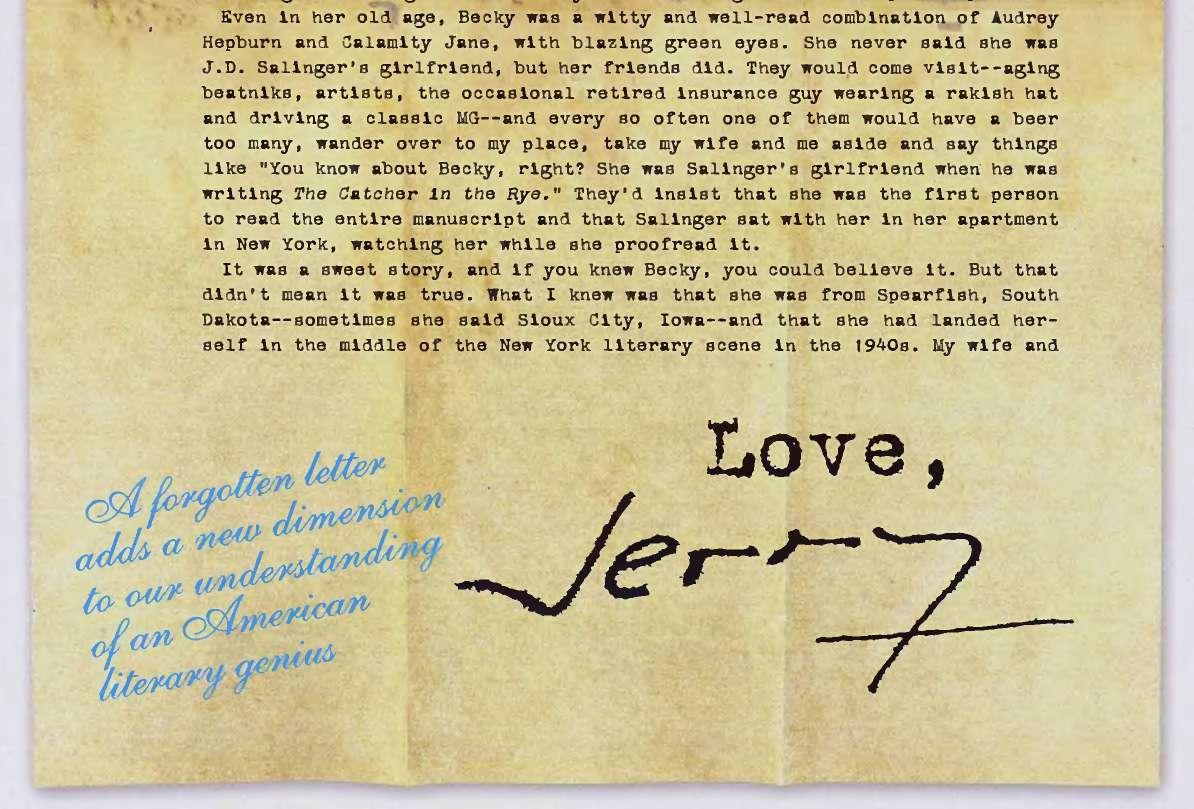 Even in her old age, Becky was a witty and well-read combination of Audrey
Hepburn and Calamity Jane, with blazing green eyes. She never said she was
J.D. Salinger's girlfriend, but her friends did. They would come visit--aging
beatniks, artists, the occasional retired insurance guy wearing a rakish hat
and driving a classic MG--and every so often one of them would have a beer
too many, wander over to my place, take my wife and me aside and say things
like "You know about Becky, right? She was Salinger's girlfriend when he was
writing The Catcher in the Rye." They'd insist that she was the first person
to read the entire manuscript and that Salinger sat with her in her apartment
in New York, watching her while she proofread it.
It was a sweet story, and if you knew Becky, you could believe it. But that
didn't mean it was true. What I knew was that she was from Spearfish, South
Dakota--sometimes she said Sioux City, Iowa--and that she had landed her-
self in the middle of the New York literary scene in the 1940s. My wife and
Love,
Jerry
A forgotten letter
adds a new dimension
to our understanding
of an American
literary genius